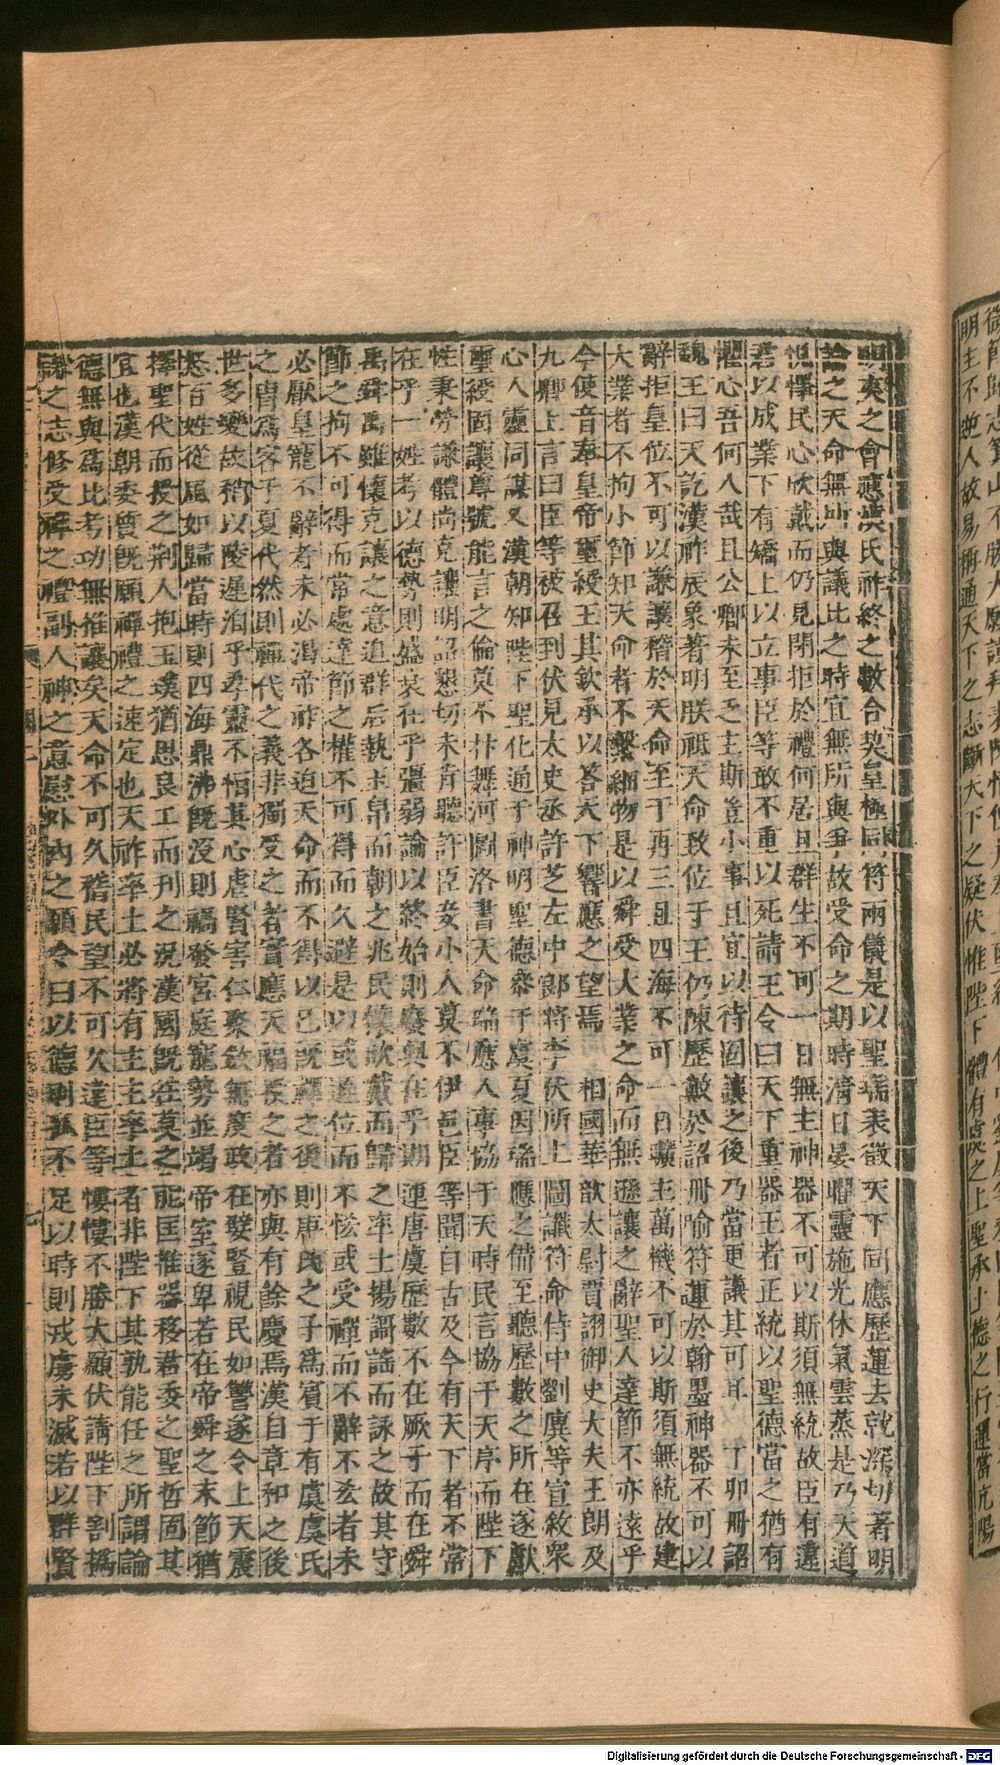 明主不逆人故易稱通天下之志斷天下之疑伏惟陛下體有虞之上聖承土德之行運當亢陽
明爽之會應漢氏祚終之數合契皇極同符兩儀是以聖瑞表徵天下同應歷運去就深切著明
論之天命無所與議比之時宜無所與爭故受命之期時清日晏曜靈施光休氣雲蒸是乃天道
悅懌民心欣戴而仍見閉拒於禮何居且群生不可一日無主神器不可以斯須無統故臣有違
君以成業下有矯上以立事臣等敢不重以死請王令曰天下重器王者正統以聖德當之猶有
懼心吾何人哉且公卿未至乏主斯豈小事且宜以待固讓之後乃當更議其可耳 丁卯冊詔
魏王曰天訖漢祚辰象著明朕祗天命致位于王仍陳歷數於詔冊喻符運於翰墨神器不可以
辭拒皇位不可以謙讓稽於天命至于再三且四海不可一日曠主萬機不可以斯須無統故建
大業者不拘小節知天命者不繫細物是以舜受大業之命而無遜讓之辭聖人達節不亦遠乎
今使音奉皇帝璽綬王其欽承以答天下響應之望焉 相國華歆太尉賈詡御史大夫王朗及
九卿上言曰臣等被召到伏見太史丞許芝左中郎將李伏所上圖讖符命侍中劉廙等宣敘眾
心人靈同謀又漢朝知陛下聖化通于神明聖德參于虞夏因瑞應之備至聽歷數之所在遂獻
璽綬固讓尊號能言之倫莫不抃舞河圖洛書天命瑞應人事協于天時民言協于天序而陛下
性秉勞謙體尚克讓明詔懇切未肯聽許臣妾小人莫不伊邑臣等聞自古及今有天下者不常
在乎一姓考以德勢則盛衰在乎彊弱論以終始則廢興在乎期運唐虞歷數不在厥子而在舜
禹舜禹雖懷克讓之意迫群后執玉帛而朝之兆民懷欣戴而歸之率土揚謌謠而詠之故其守
節之拘不可得而常處達節之權不可得而久避是以或遜位而不恡或受禪而不辭不恡者未
必厭皇寵不辭者未必渴帝祚各迫天命而不得以已既禪之後則唐氏之子為賓于有虞虞氏
之冑為客于夏代然則禪代之義非獨受之者實應天福授之者亦與有餘慶焉漢自章和之後
世多變故稍以陵遲洎乎孝靈不恒其心虐賢害仁聚斂無度政在嬖豎視民如讎遂令上天震
怒百姓從風如歸當時則四海鼎沸既沒則禍發宮庭寵勢並竭帝室遂卑若在帝舜之末節猶
擇聖代而授之荊人抱玉璞猶思良工而刊之況漢國既往莫之能匡推器移君委之聖哲固其
宜也漢朝委質既願禪禮之速定也天祚率土必將有主主率土者非陛下其孰能任之所謂論
德無與為比考功無推讓矣天命不可久稽民望不可久違臣等慺慺不勝大願伏請陛下割撝
謙之志修受禪之禮副人神之意慰外內之願令曰以德則孤不足以時則戎虜未滅若以群賢
Digitalisierung gefördert durch die Deutsche Forschungsgemeinschaft - DFG